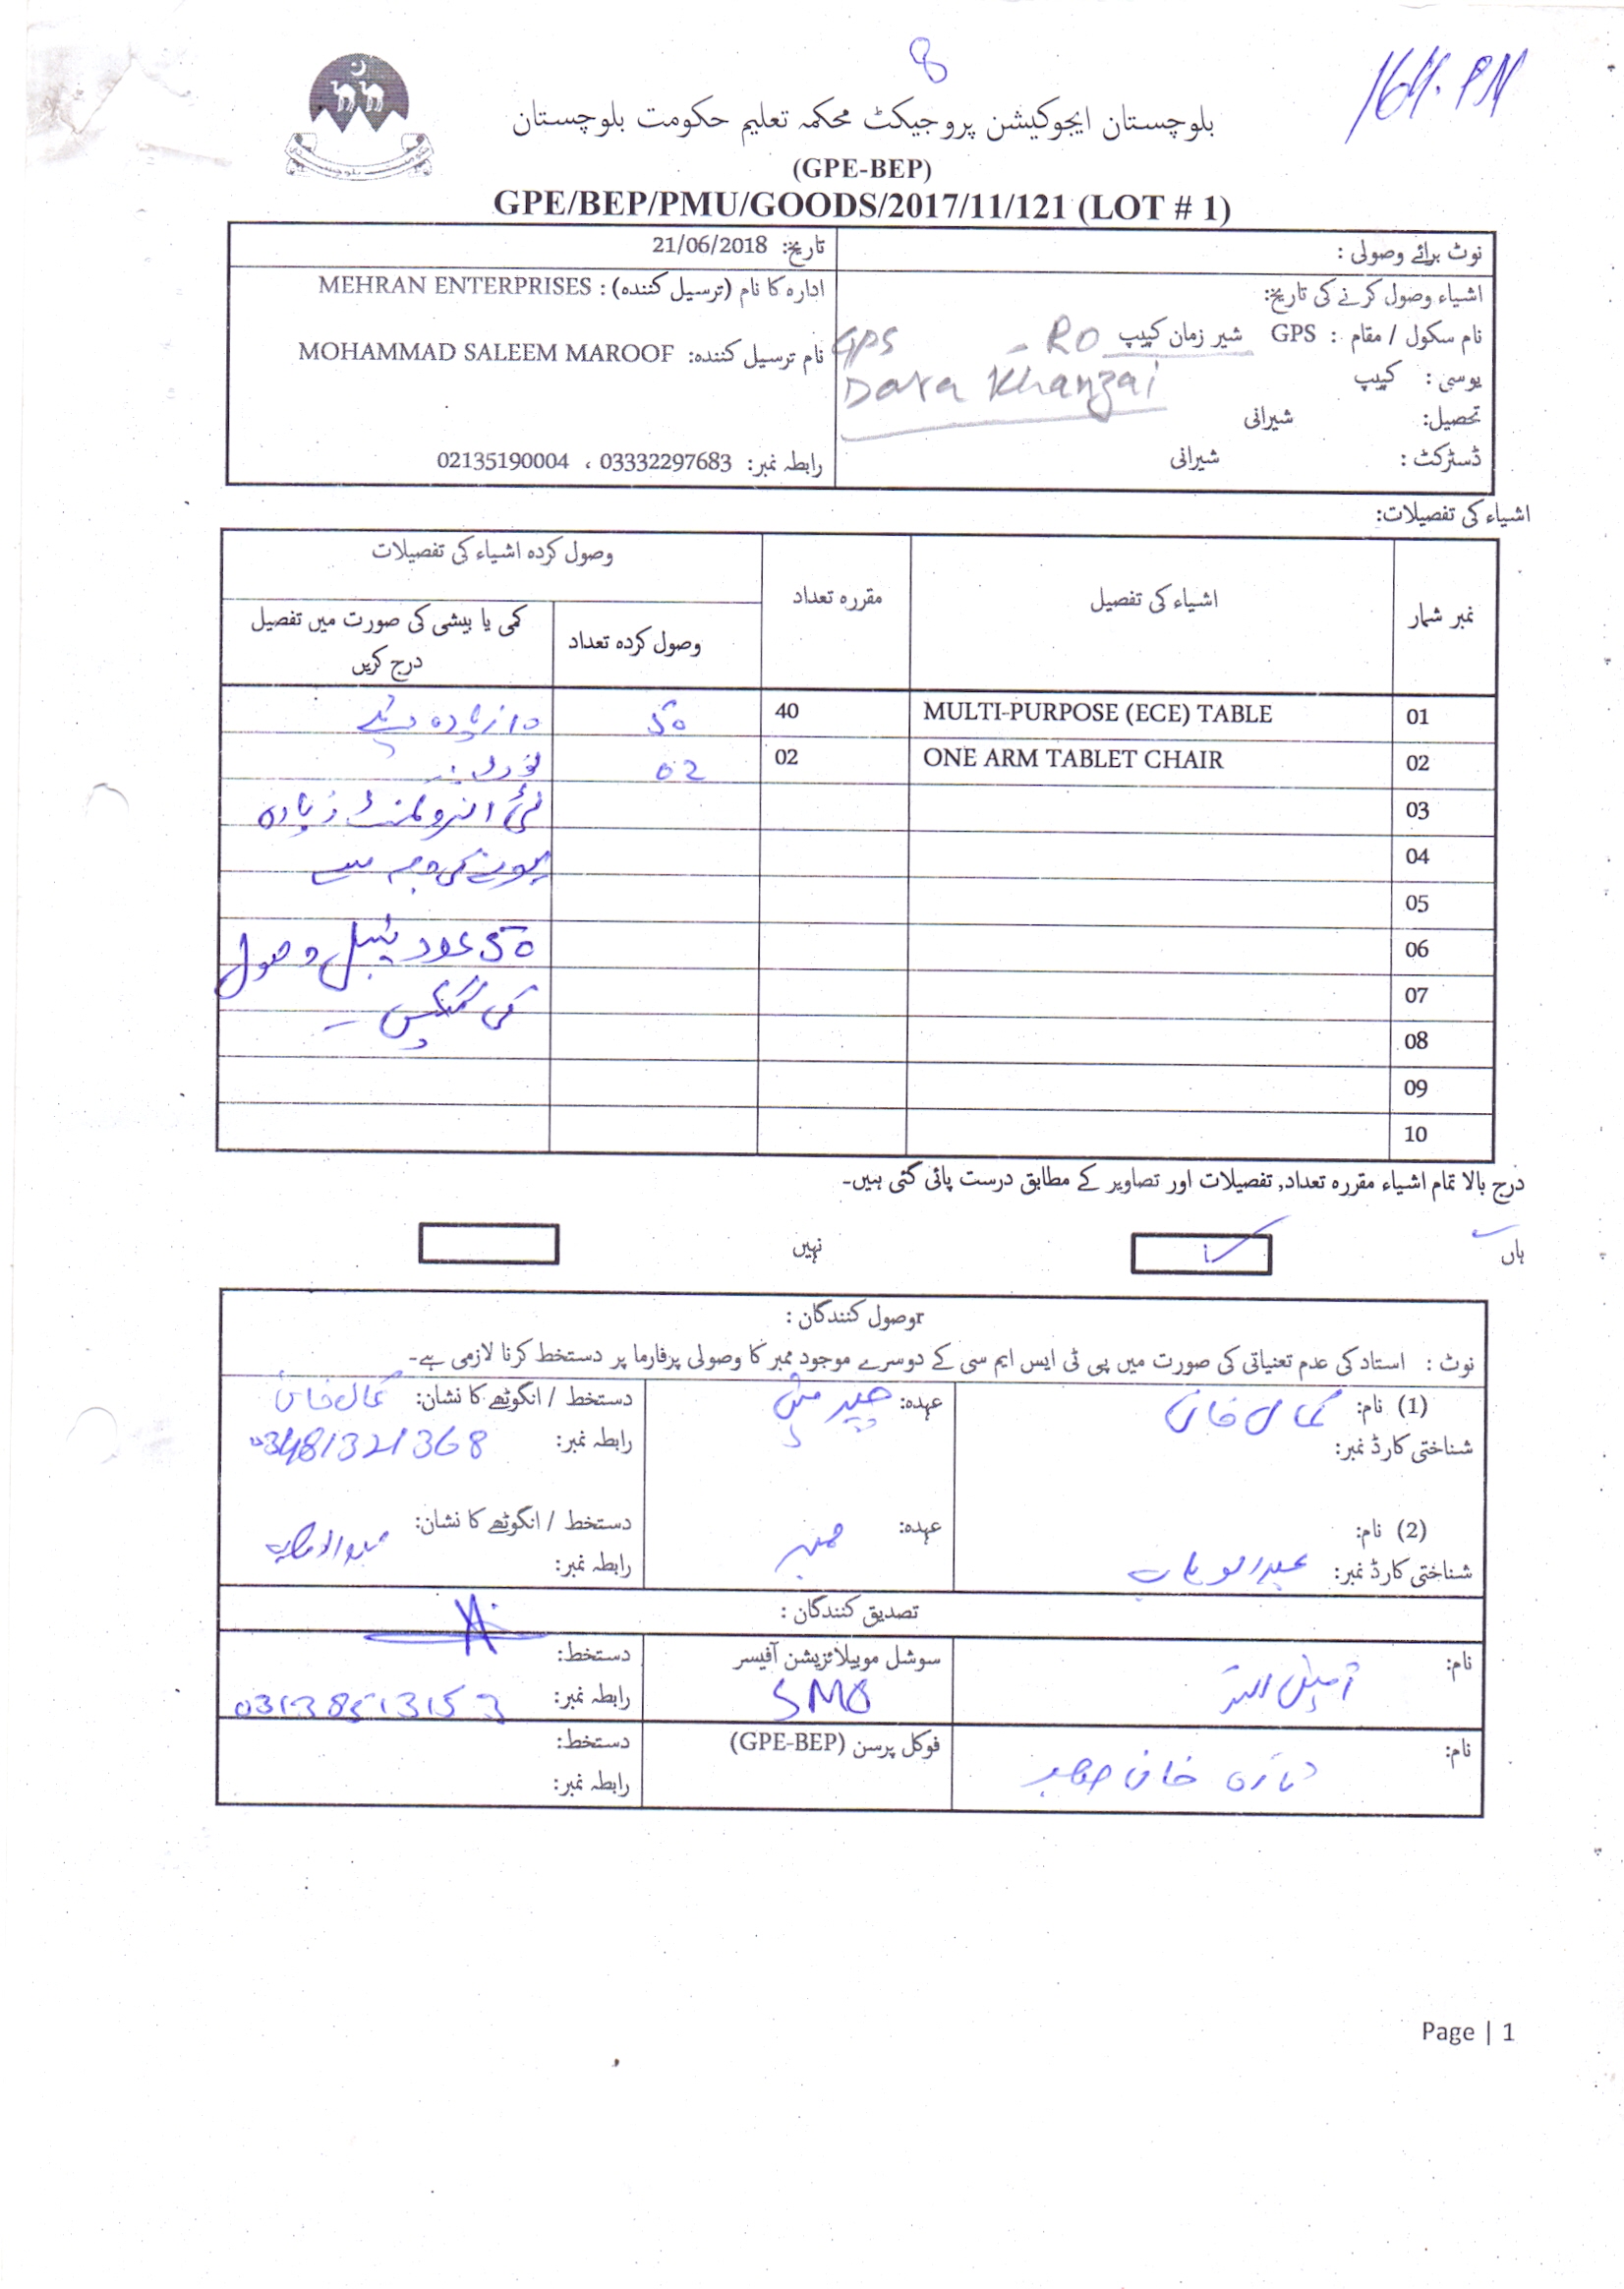 8
بلوچستان ایجوکیشن پروجیکٹ محکمہ تعلیم حکومت بلوچستان
(GPE-BEP)
GPE/BEP/PMU/GOODS/2017/11/121 (LOT # 1)
نوٹ برائے وصولی :
اشیاء وصول کرنے کی تاریخ:
نام سکول / مقام : GPS شیر زمان کیپ - RO GPS
Dara Khanzai
یوسی : کیپ
تحصیل: شیرانی
ڈسٹرکٹ : شیرانی
تاریخ: 21/06/2018
ادارہ کا نام (ترسیل کنندہ) : MEHRAN ENTERPRISES
نام ترسیل کنندہ: MOHAMMAD SALEEM MAROOF
رابطہ نمبر: 03332297683 ، 02135190004
اشیاء کی تفصیلات:
نمبر شمار اشیاء کی تفصیل مقررہ تعداد وصول کردہ اشیاء کی تفصیلات
وصول کردہ تعداد کمی یا بیشی کی صورت میں تفصیل درج کریں
01 MULTI-PURPOSE (ECE) TABLE 40 50
02 ONE ARM TABLET CHAIR 02 02
03 زیادہ
04 ہونے کی وجہ سے
05
06 50 عدد ٹیبل وصول
07 کی گئیں
08
09
10
درج بالا تمام اشیاء مقررہ تعداد, تفصیلات اور تصاویر کے مطابق درست پائی گئی ہیں۔
ہاں نہیں
rوصول کنندگان :
نوٹ : استاد کی عدم تعنیاتی کی صورت میں پی ٹی ایس ایم سی کے دوسرے موجود ممبر کا وصولی پرفارما پر دستخط کرنا لازمی ہے۔
(1) نام: کمال خان عہدہ: چیئرمین دستخط / انگوٹھے کا نشان: کمال خان
شناختی کارڈ نمبر: رابطہ نمبر: 03481321368
(2) نام: عہدہ: ممبر دستخط / انگوٹھے کا نشان: عبدالوہاب
شناختی کارڈ نمبر: عبدالوہاب رابطہ نمبر:
تصدیق کنندگان :
نام: سوشل موبیلائزیشن آفیسر دستخط:
SMO رابطہ نمبر: 03138513153
نام: فوکل پرسن (GPE-BEP) دستخط:
رابطہ نمبر:
Page | 1